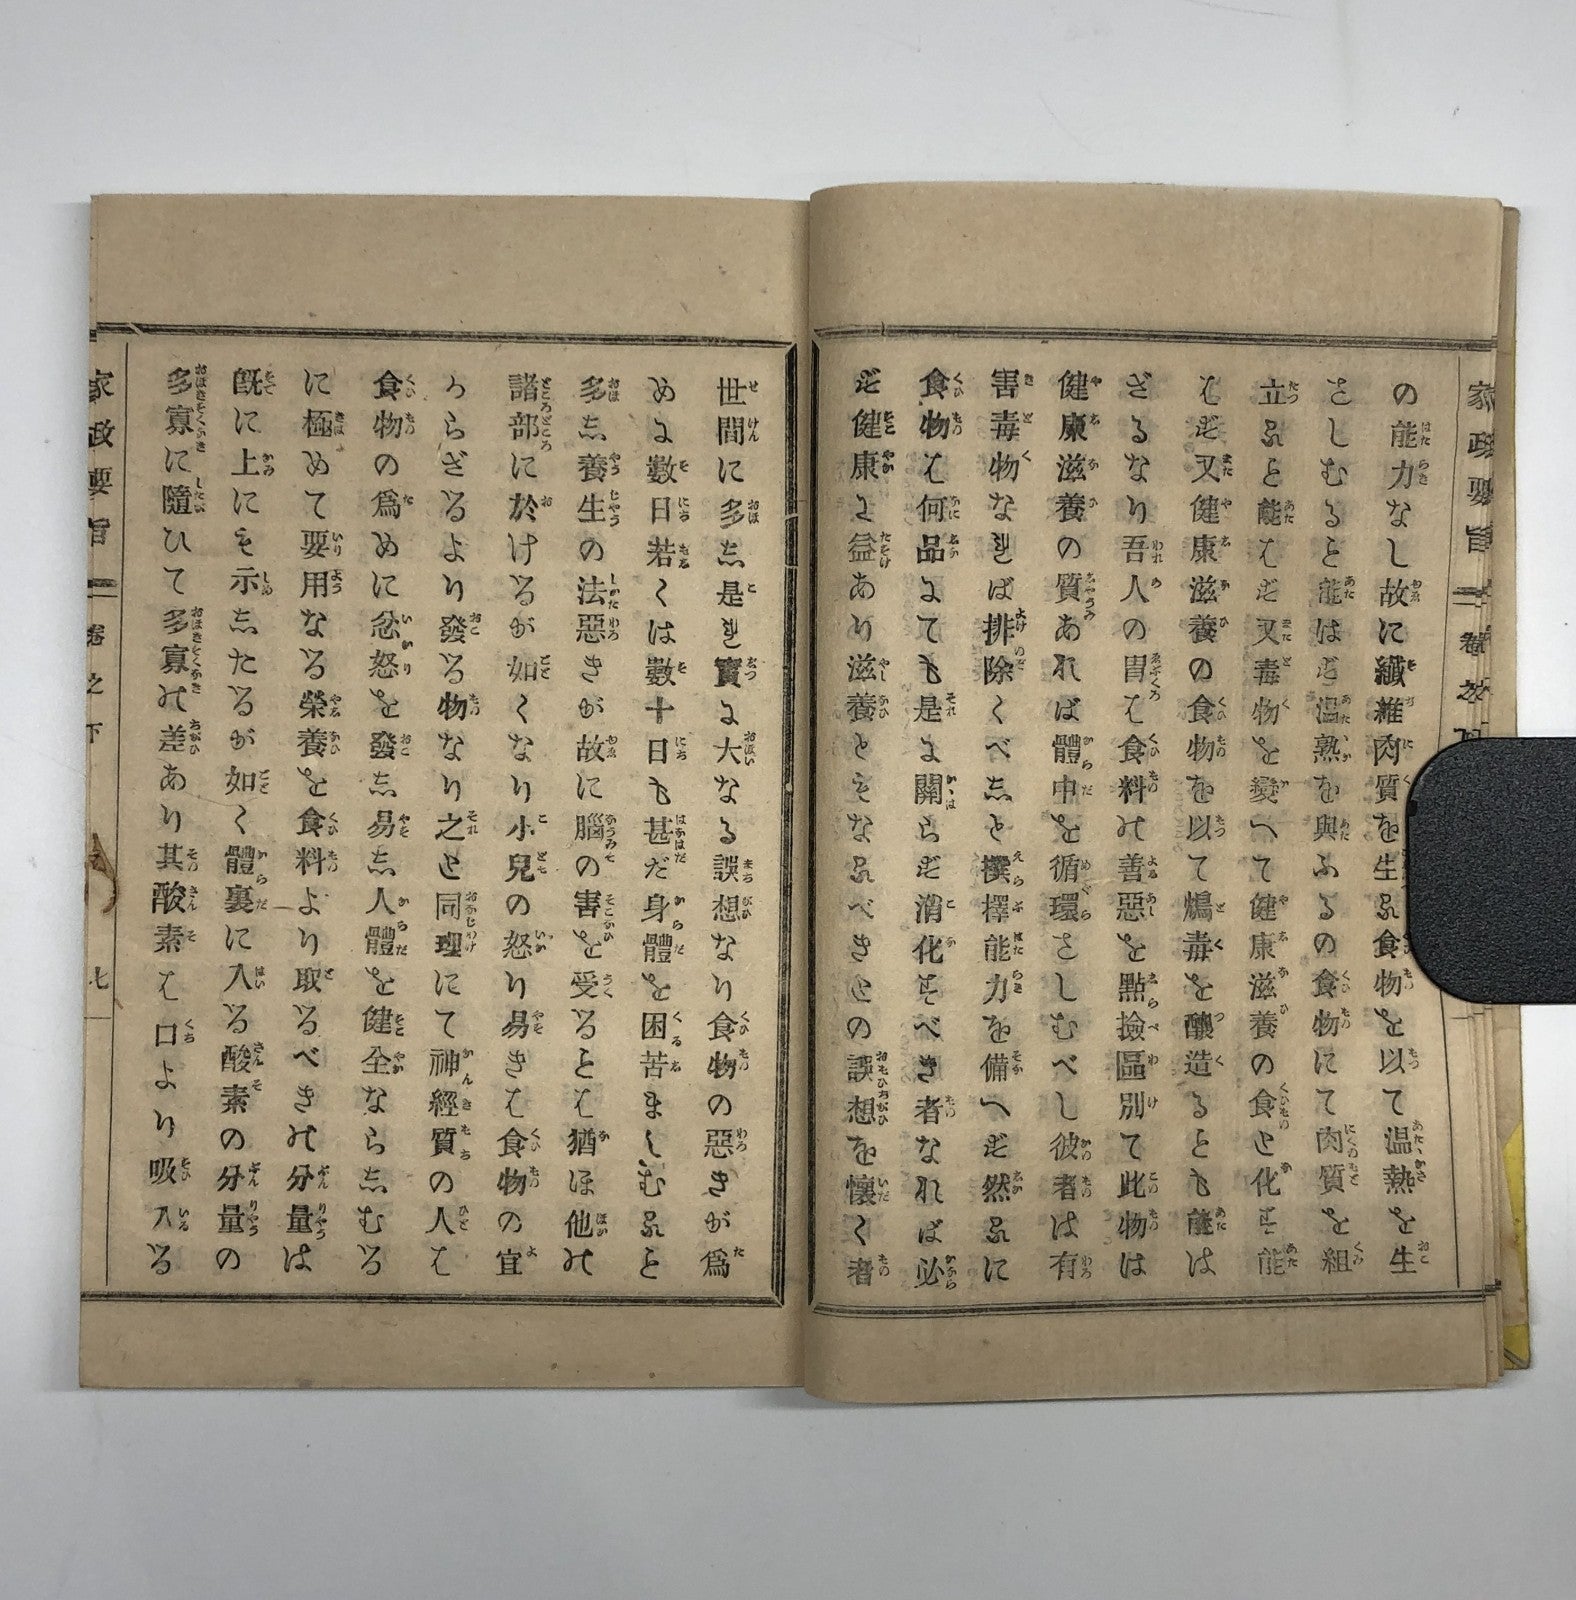 の能力なし故に纖維肉質を生ゐ食物を以て温熱を生
さしむると能はず温熱を與ふるの食物にて肉質を組
立ゐと能はず又毒物を變へて健康滋養の食と化す能
はず又健康滋養の食物を以て鴆毒を釀造るとも能は
ざるなり吾人の胃は食料の善惡を點撿區別て此物は
健康滋養の質あれば體中を循環さしむべし彼者は有
害毒物なれば排除くべしと撰擇能力を備へず然ゐに
食物は何品にても是に關らず消化すべき者なれば必
ず健康に益あり滋養ともなゐべきとの誤想を懷く者
世間に多し是れ實に大なる誤想なり食物の惡きが爲
めに數日若くは數十日も甚だ身體を困苦ましむゐと
多し養生の法惡きが故に腦の害を受るとは猶ほ他の
諸部に於けるが如くなり小兒の怒り易きは食物の宜
からざるより發る物なり之と同理にて神經質の人は
食物の爲めに忿怒を發し易し人體を健全ならしむる
に極めて要用なる榮養を食料より取るべきの分量は
既に上にも示したるが如く體裏に入る酸素の分量の
多寡に隨ひて多寡の差あり其酸素は口より吸入る
家政要旨 卷之下 七